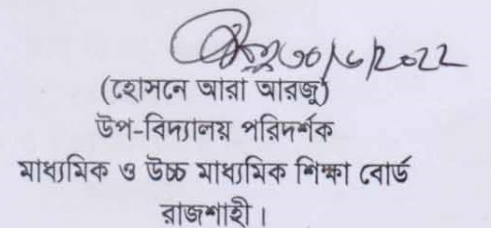 ৩০/৬/2022
(হোসনে আরা আরজু)
উপ-বিদ্যালয় পরিদর্শক
মাধ্যমিক ও উচ্চ মাধ্যমিক শিক্ষা বোর্ড
রাজশাহী।